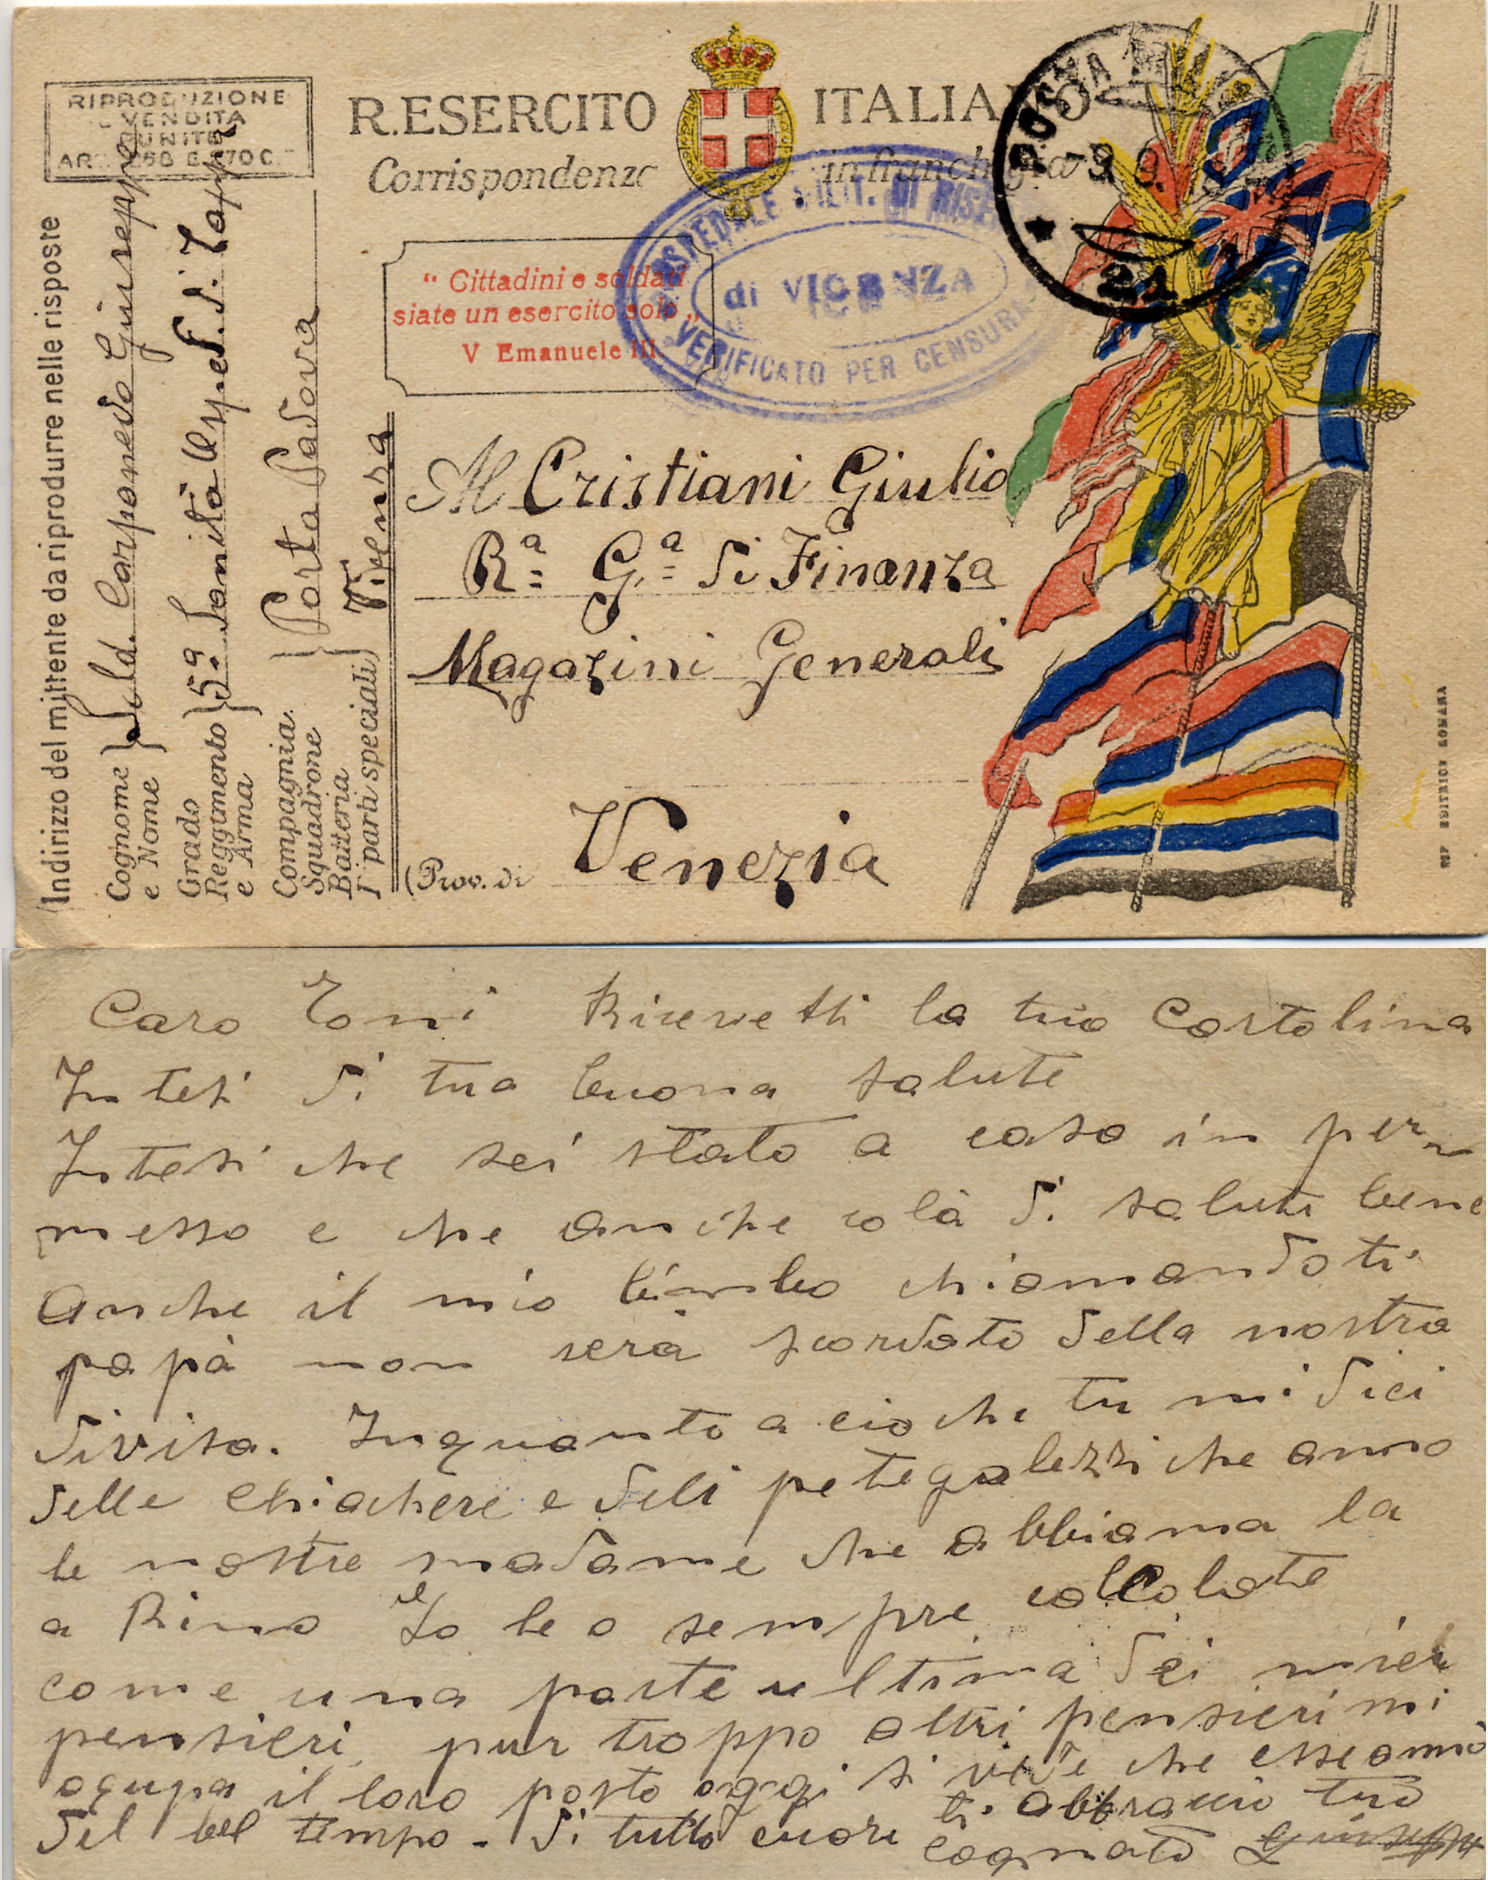 RIPRODUZIONE
E VENDITA
PUNITE
R. ESERCITO ITALIANO
Corrispondenza in franchigia
POSTA
9. 9.
21
OSPEDALE MILIT. DI RISERVA
di VICENZA
VERIFICATO PER CENSURA
“ Cittadini e soldati
siate un esercito solo „
V Emanuele III
Indirizzo del mittente da riprodurre nelle risposte
Cognome
e Nome } Sold. Carponedo Giuseppe
Grado
Reggimento
e Arma } 5ª Sanità Osped. di Tappa
Compagnia
Squadrone
Batteria
(parti speciali) } Porta Padova
Vicenza
Al Cristiani Giulio
Rª Gª di Finanza
Magazini Generali
(Prov. di Venezia
Caro Toni Ricevetti la tua Cartolina
Intesi di tua buona salute
Intesi che sei stato a casa in per
messo e che anche colà di salute bene
Anche il mio bimbo chiamandoti
papà non serà scordato della nostra
divisa. Inquanto a cio che tu mi dici
delle chiachere e deli petegolezzi che anno
le nostre madame che abbiamo la
a Rimo Io le o sempre calcolate
come una parte ultima dei miei
pensieri, pur troppo altri pensieri mi
ocupa il loro posto oggi si vede che esse anno
del bel tempo - di tutto cuore ti abbraccio tuo
cognato Giuseppe